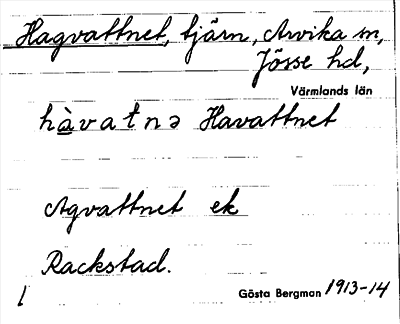 Hagvattnet, tjärn, Arvika sn,
Jösse hd,
Värmlands län
hàvatnə Havattnet
Agvattnet ek
Rackstad.
Gösta Bergman 1913-14